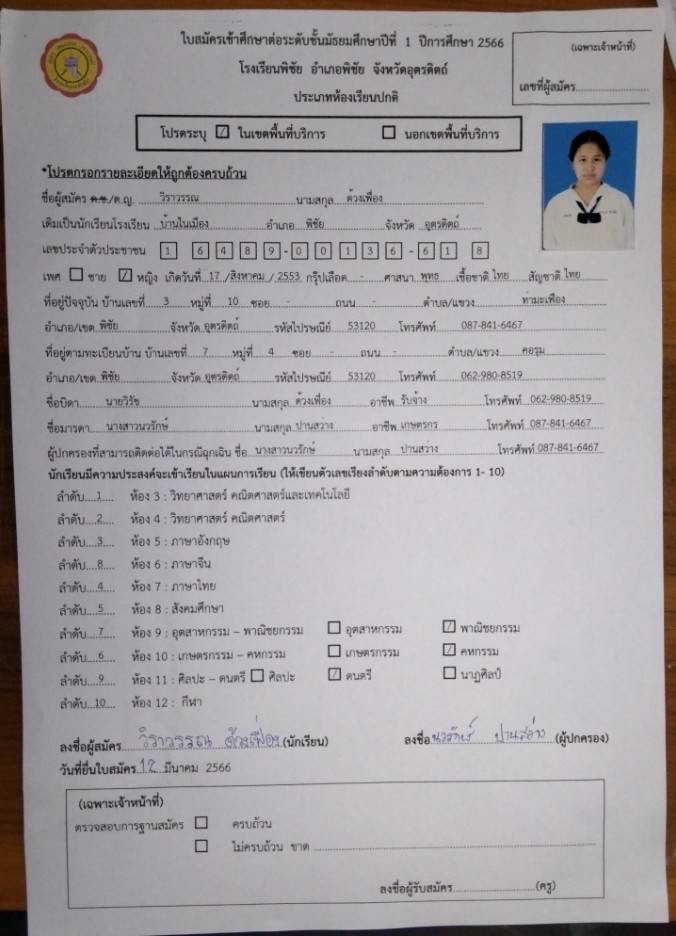 ใบสมัครเข้าศึกษาต่อระดับชั้นมัธยมศึกษาปีที่ 1 ปีการศึกษา 2566
(เฉพาะเจ้าหน้าที่)
โรงเรียนพิชัย อำเภอพิชัย จังหวัดอุตรดิตถ์
เลขที่ผู้สมัคร
ประเภทห้องเรียนปกติ
โปรดระบุ ☑ ในเขตพื้นที่บริการ ☐ นอกเขตพื้นที่บริการ
*โปรดกรอกรายละเอียดให้ถูกต้องครบถ้วน
ชื่อผู้สมัคร ด.ช./ด.ญ. วิราวรรณ นามสกุล ด้วงเฟื่อง
เดิมเป็นนักเรียนโรงเรียน บ้านในเมือง อำเภอ พิชัย จังหวัด อุตรดิตถ์
เลขประจำตัวประชาชน 1 6489-00136-61 8
เพศ ☐ ชาย ☑ หญิง เกิดวันที่ 17 /สิงหาคม / 2553 กรุ๊ปเลือด - ศาสนา พุทธ เชื้อชาติ ไทย สัญชาติ ไทย
ที่อยู่ปัจจุบัน บ้านเลขที่ 3 หมู่ที่ 10 ซอย - ถนน - ตำบล/แขวง ท่ามะเฟือง
อำเภอ/เขต พิชัย จังหวัด อุตรดิตถ์ รหัสไปรษณีย์ 53120 โทรศัพท์ 087-841-6467
ที่อยู่ตามทะเบียนบ้าน บ้านเลขที่ 7 หมู่ที่ 4 ซอย - ถนน - ตำบล/แขวง คอรุม
อำเภอ/เขต พิชัย จังหวัด อุตรดิตถ์ รหัสไปรษณีย์ 53120 โทรศัพท์ 062-980-8519
ชื่อบิดา นายวิรัช นามสกุล ด้วงเฟื่อง อาชีพ รับจ้าง โทรศัพท์ 062-980-8519
ชื่อมารดา นางสาวนวรักษ์ นามสกุล ปานสว่าง อาชีพ เกษตรกร โทรศัพท์ 087-841-6467
ผู้ปกครองที่สามารถติดต่อได้ในกรณีฉุกเฉิน ชื่อ นางสาวนวรักษ์ นามสกุล ปานสว่าง โทรศัพท์ 087-841-6467
นักเรียนมีความประสงค์จะเข้าเรียนในแผนการเรียน (ให้เขียนตัวเลขเรียงลำดับตามความต้องการ 1- 10)
ลำดับ 1 ห้อง 3 : วิทยาศาสตร์ คณิตศาสตร์และเทคโนโลยี
ลำดับ 2 ห้อง 4 : วิทยาศาสตร์ คณิตศาสตร์
ลำดับ 3 ห้อง 5 : ภาษาอังกฤษ
ลำดับ 8 ห้อง 6 : ภาษาจีน
ลำดับ 4 ห้อง 7 : ภาษาไทย
ลำดับ 5 ห้อง 8 : สังคมศึกษา
ลำดับ 7 ห้อง 9 : อุตสาหกรรม – พาณิชยกรรม ☐ อุตสาหกรรม ☑ พาณิชยกรรม
ลำดับ 6 ห้อง 10 : เกษตรกรรม – คหกรรม ☐ เกษตรกรรม ☑ คหกรรม
ลำดับ 9 ห้อง 11 : ศิลปะ – ดนตรี ☐ ศิลปะ ☑ ดนตรี ☐ นาฏศิลป์
ลำดับ 10 ห้อง 12 : กีฬา
ลงชื่อผู้สมัคร วิราวรรณ ด้วงเฟื่อง (นักเรียน) ลงชื่อ นวรักษ์ ปานสว่าง (ผู้ปกครอง)
วันที่ยื่นใบสมัคร 12 มีนาคม 2566
(เฉพาะเจ้าหน้าที่)
ตรวจสอบการฐานสมัคร ☐ ครบถ้วน
☐ ไม่ครบถ้วน ขาด
ลงชื่อผู้รับสมัคร (ครู)